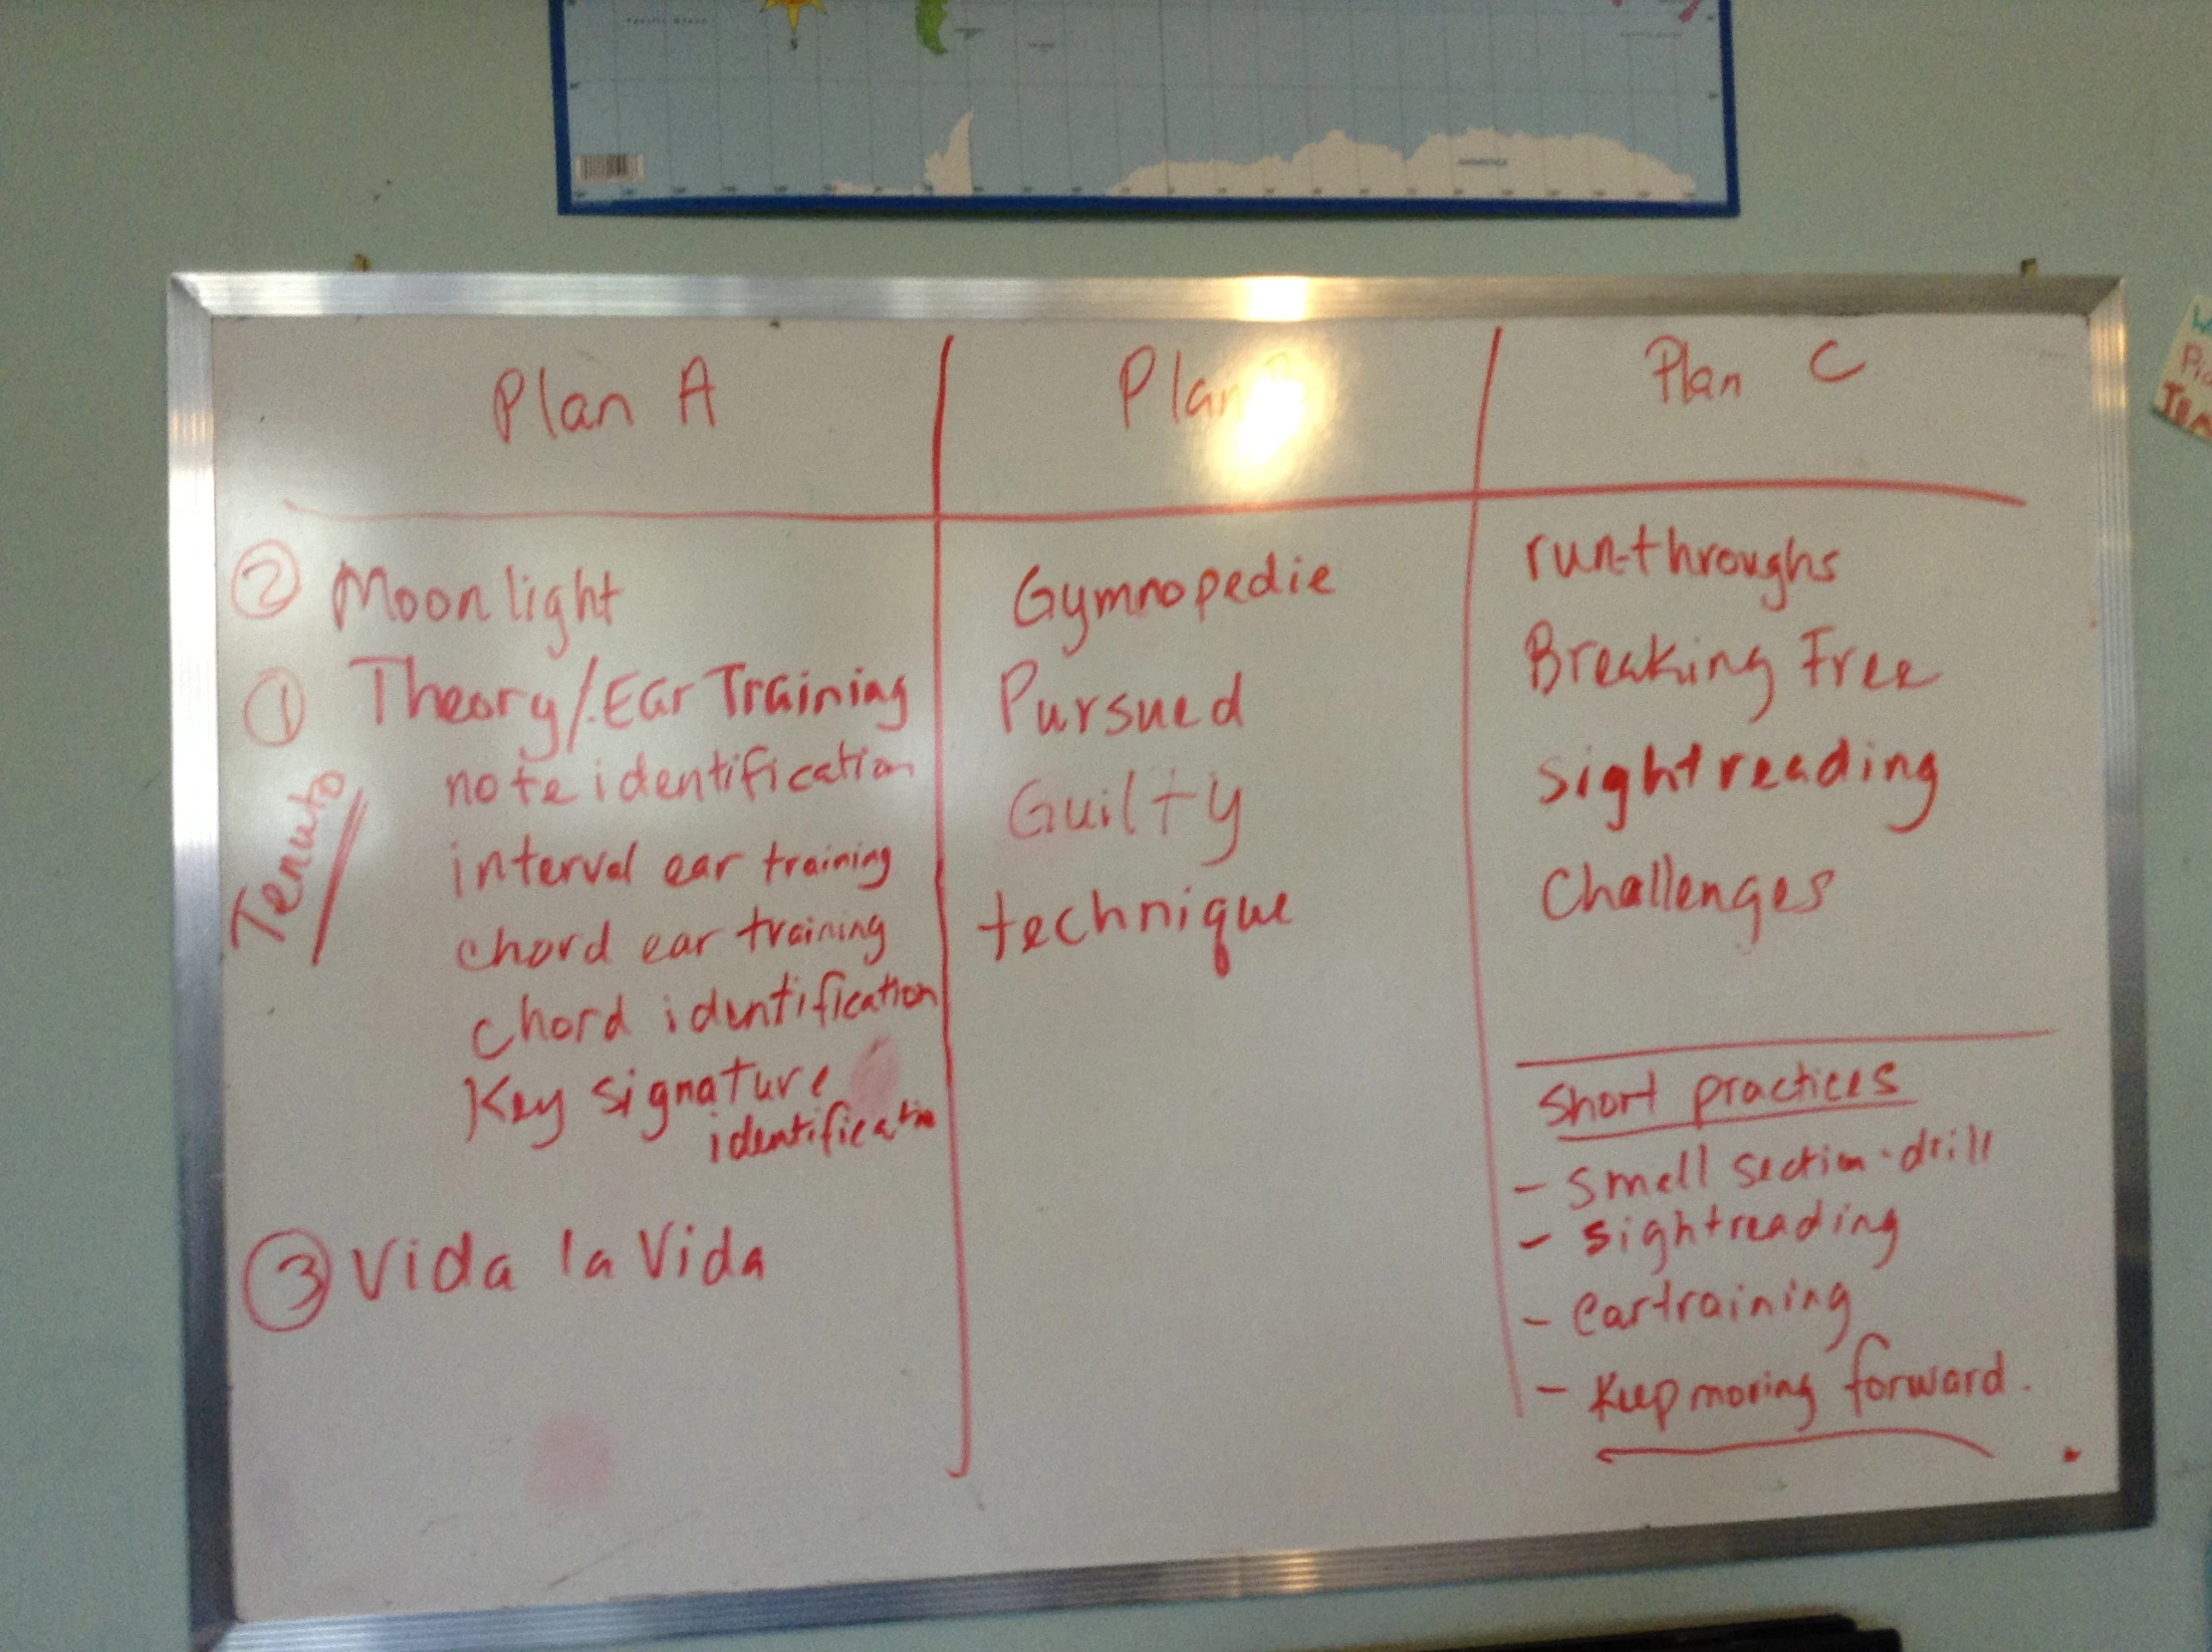 Plan A
② Moonlight
① Theory/Ear Training
Tenuto
note identification
interval ear training
chord ear training
chord identification
Key signature
identification
③ Vida la Vida
Plan
Gymnopedie
Pursued
Guilty
technique
Plan C
run-throughs
Breaking Free
sightreading
Challenges
Short practices
- small section-drill
- sightreading
- eartraining
- Keep moving forward.